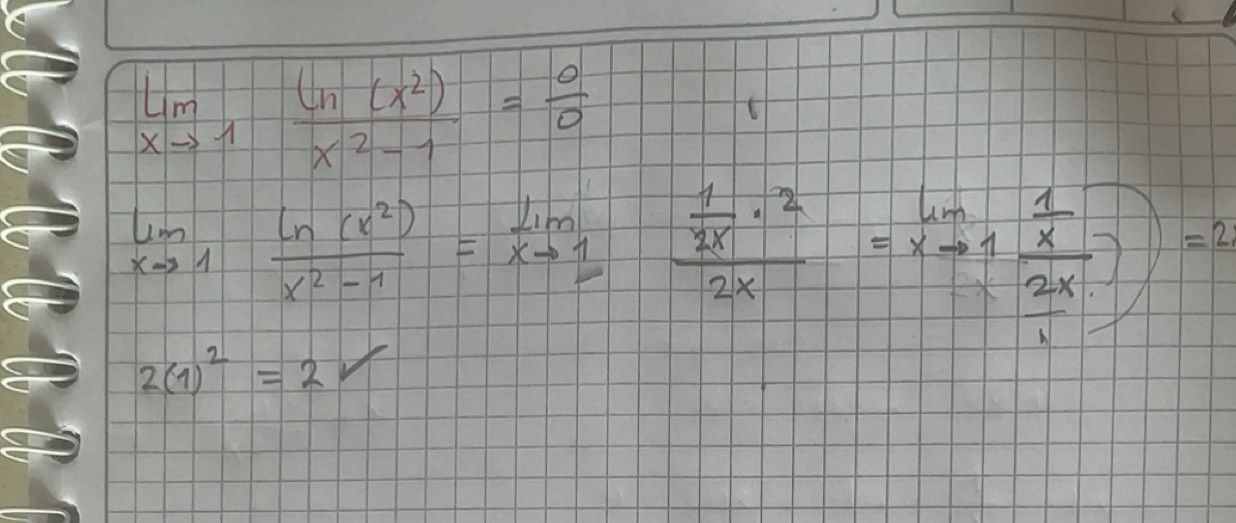 Lim x→1 ln (x²) / x² - 1 = 0/0
Lim x→1 ln (x²) / x² - 1 = Lim x→1 (1/2x · 2) / 2x = Lim x→1 (1/x) / (2x/1) = 2
2(1)² = 2 ✓